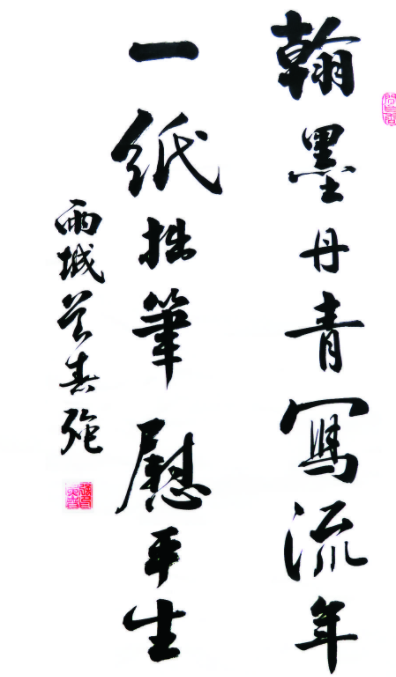 翰墨丹青寫流年
一紙拙筆慰平生
雨城